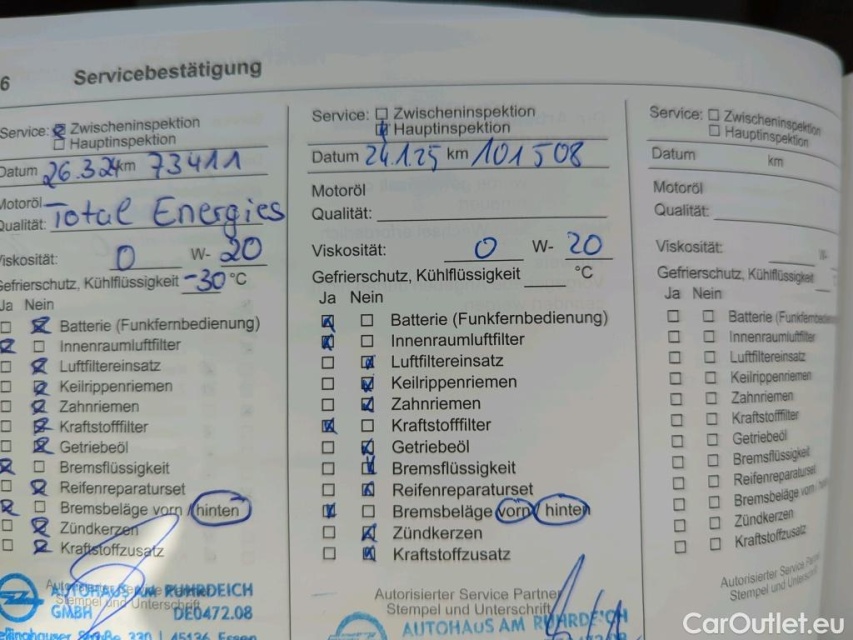 6 Servicebestätigung
Service: Zwischeninspektion
Hauptinspektion
Datum 26.3.24 km 73411
Motoröl
Qualität: Total Energies
Viskosität: 0 W- 20
Gefrierschutz, Kühlflüssigkeit -30 °C
Ja Nein
Batterie (Funkfernbedienung)
Innenraumluftfilter
Luftfiltereinsatz
Keilrippenriemen
Zahnriemen
Kraftstofffilter
Getriebeöl
Bremsflüssigkeit
Reifenreparaturset
Bremsbeläge vorn / hinten
Zündkerzen
Kraftstoffzusatz
Autorisierter Service Partner
Stempel und Unterschrift
AUTOHAUS AM RUHRDEICH
GMBH DE0472.08
45136 Essen
Service: Zwischeninspektion
Hauptinspektion
Datum 24.1.25 km 101508
Motoröl
Qualität:
Viskosität: 0 W- 20
Gefrierschutz, Kühlflüssigkeit °C
Ja Nein
Batterie (Funkfernbedienung)
Innenraumluftfilter
Luftfiltereinsatz
Keilrippenriemen
Zahnriemen
Kraftstofffilter
Getriebeöl
Bremsflüssigkeit
Reifenreparaturset
Bremsbeläge vorn / hinten
Zündkerzen
Kraftstoffzusatz
Autorisierter Service Partner
Stempel und Unterschrift
AUTOHAUS AM RUHRDEICH
Service: Zwischeninspektion
Hauptinspektion
Datum km
Motoröl
Qualität:
Viskosität:
Gefrierschutz, Kühlflüssigkeit
Ja Nein
Batterie (Funkfernbedienung
Innenraumluftfilter
Luftfiltereinsatz
Keilrippenriemen
Zahnriemen
Kraftstofffilter
Getriebeöl
Bremsflüssigkeit
Reifenreparaturset
Bremsbeläge vorn
Zündkerzen
Kraftstoffzusatz
Autorisierter Service Partner
Stempel und Unterschrift
CarOutlet.eu